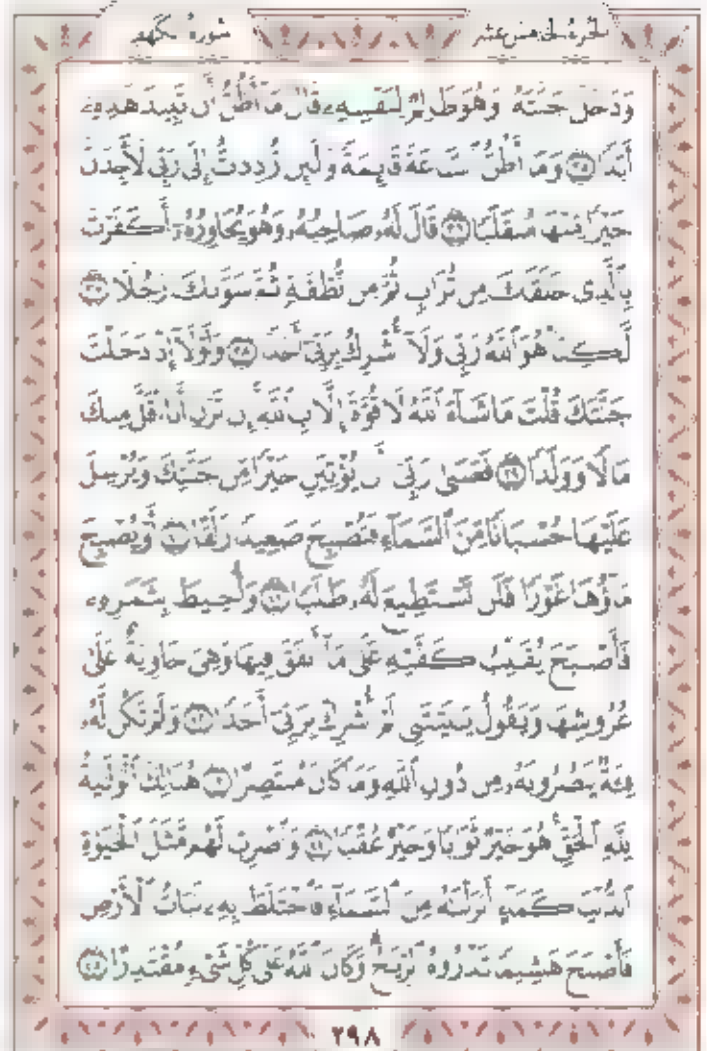 الجزء الخامس عشر سورة الكهف
وَدَخَلَ جَنَّتَهُۥ وَهُوَ ظَالِمٌ لِّنَفْسِهِۦ قَالَ مَآ أَظُنُّ أَن تَبِيدَ هَٰذِهِۦٓ
أَبَدًا ٣٥ وَمَآ أَظُنُّ ٱلسَّاعَةَ قَآئِمَةً وَلَئِن رُّدِدتُّ إِلَىٰ رَبِّى لَأَجِدَنَّ
خَيْرًا مِّنْهَا مُنقَلَبًا ٣٦ قَالَ لَهُۥ صَاحِبُهُۥ وَهُوَ يُحَاوِرُهُۥٓ أَكَفَرْتَ
بِٱلَّذِى خَلَقَكَ مِن تُرَابٍ ثُمَّ مِن نُّطْفَةٍ ثُمَّ سَوَّىٰكَ رَجُلًا ٣٧
لَّٰكِنَّا۠ هُوَ ٱللَّهُ رَبِّى وَلَآ أُشْرِكُ بِرَبِّىٓ أَحَدًا ٣٨ وَلَوْلَآ إِذْ دَخَلْتَ
جَنَّتَكَ قُلْتَ مَا شَآءَ ٱللَّهُ لَا قُوَّةَ إِلَّا بِٱللَّهِ إِن تَرَنِ أَنَا۠ أَقَلَّ مِنكَ
مَالًا وَوَلَدًا ٣٩ فَعَسَىٰ رَبِّىٓ أَن يُؤْتِيَنِ خَيْرًا مِّن جَنَّتِكَ وَيُرْسِلَ
عَلَيْهَا حُسْبَانًا مِّنَ ٱلسَّمَآءِ فَتُصْبِحَ صَعِيدًا زَلَقًا ٤٠ أَوْ يُصْبِحَ
مَآؤُهَا غَوْرًا فَلَن تَسْتَطِيعَ لَهُۥ طَلَبًا ٤١ وَأُحِيطَ بِثَمَرِهِۦ
فَأَصْبَحَ يُقَلِّبُ كَفَّيْهِ عَلَىٰ مَآ أَنفَقَ فِيهَا وَهِىَ خَاوِيَةٌ عَلَىٰ
عُرُوشِهَا وَيَقُولُ يَٰلَيْتَنِى لَمْ أُشْرِكْ بِرَبِّىٓ أَحَدًا ٤٢ وَلَمْ تَكُن لَّهُۥ
فِئَةٌ يَنصُرُونَهُۥ مِن دُونِ ٱللَّهِ وَمَا كَانَ مُنتَصِرًا ٤٣ هُنَالِكَ ٱلْوَلَٰيَةُ
لِلَّهِ ٱلْحَقِّ هُوَ خَيْرٌ ثَوَابًا وَخَيْرٌ عُقْبًا ٤٤ وَٱضْرِبْ لَهُم مَّثَلَ ٱلْحَيَوٰةِ
ٱلدُّنْيَا كَمَآءٍ أَنزَلْنَٰهُ مِنَ ٱلسَّمَآءِ فَٱخْتَلَطَ بِهِۦ نَبَاتُ ٱلْأَرْضِ
فَأَصْبَحَ هَشِيمًا تَذْرُوهُ ٱلرِّيَٰحُ وَكَانَ ٱللَّهُ عَلَىٰ كُلِّ شَىْءٍ مُّقْتَدِرًا ٤٥
٢٩٨